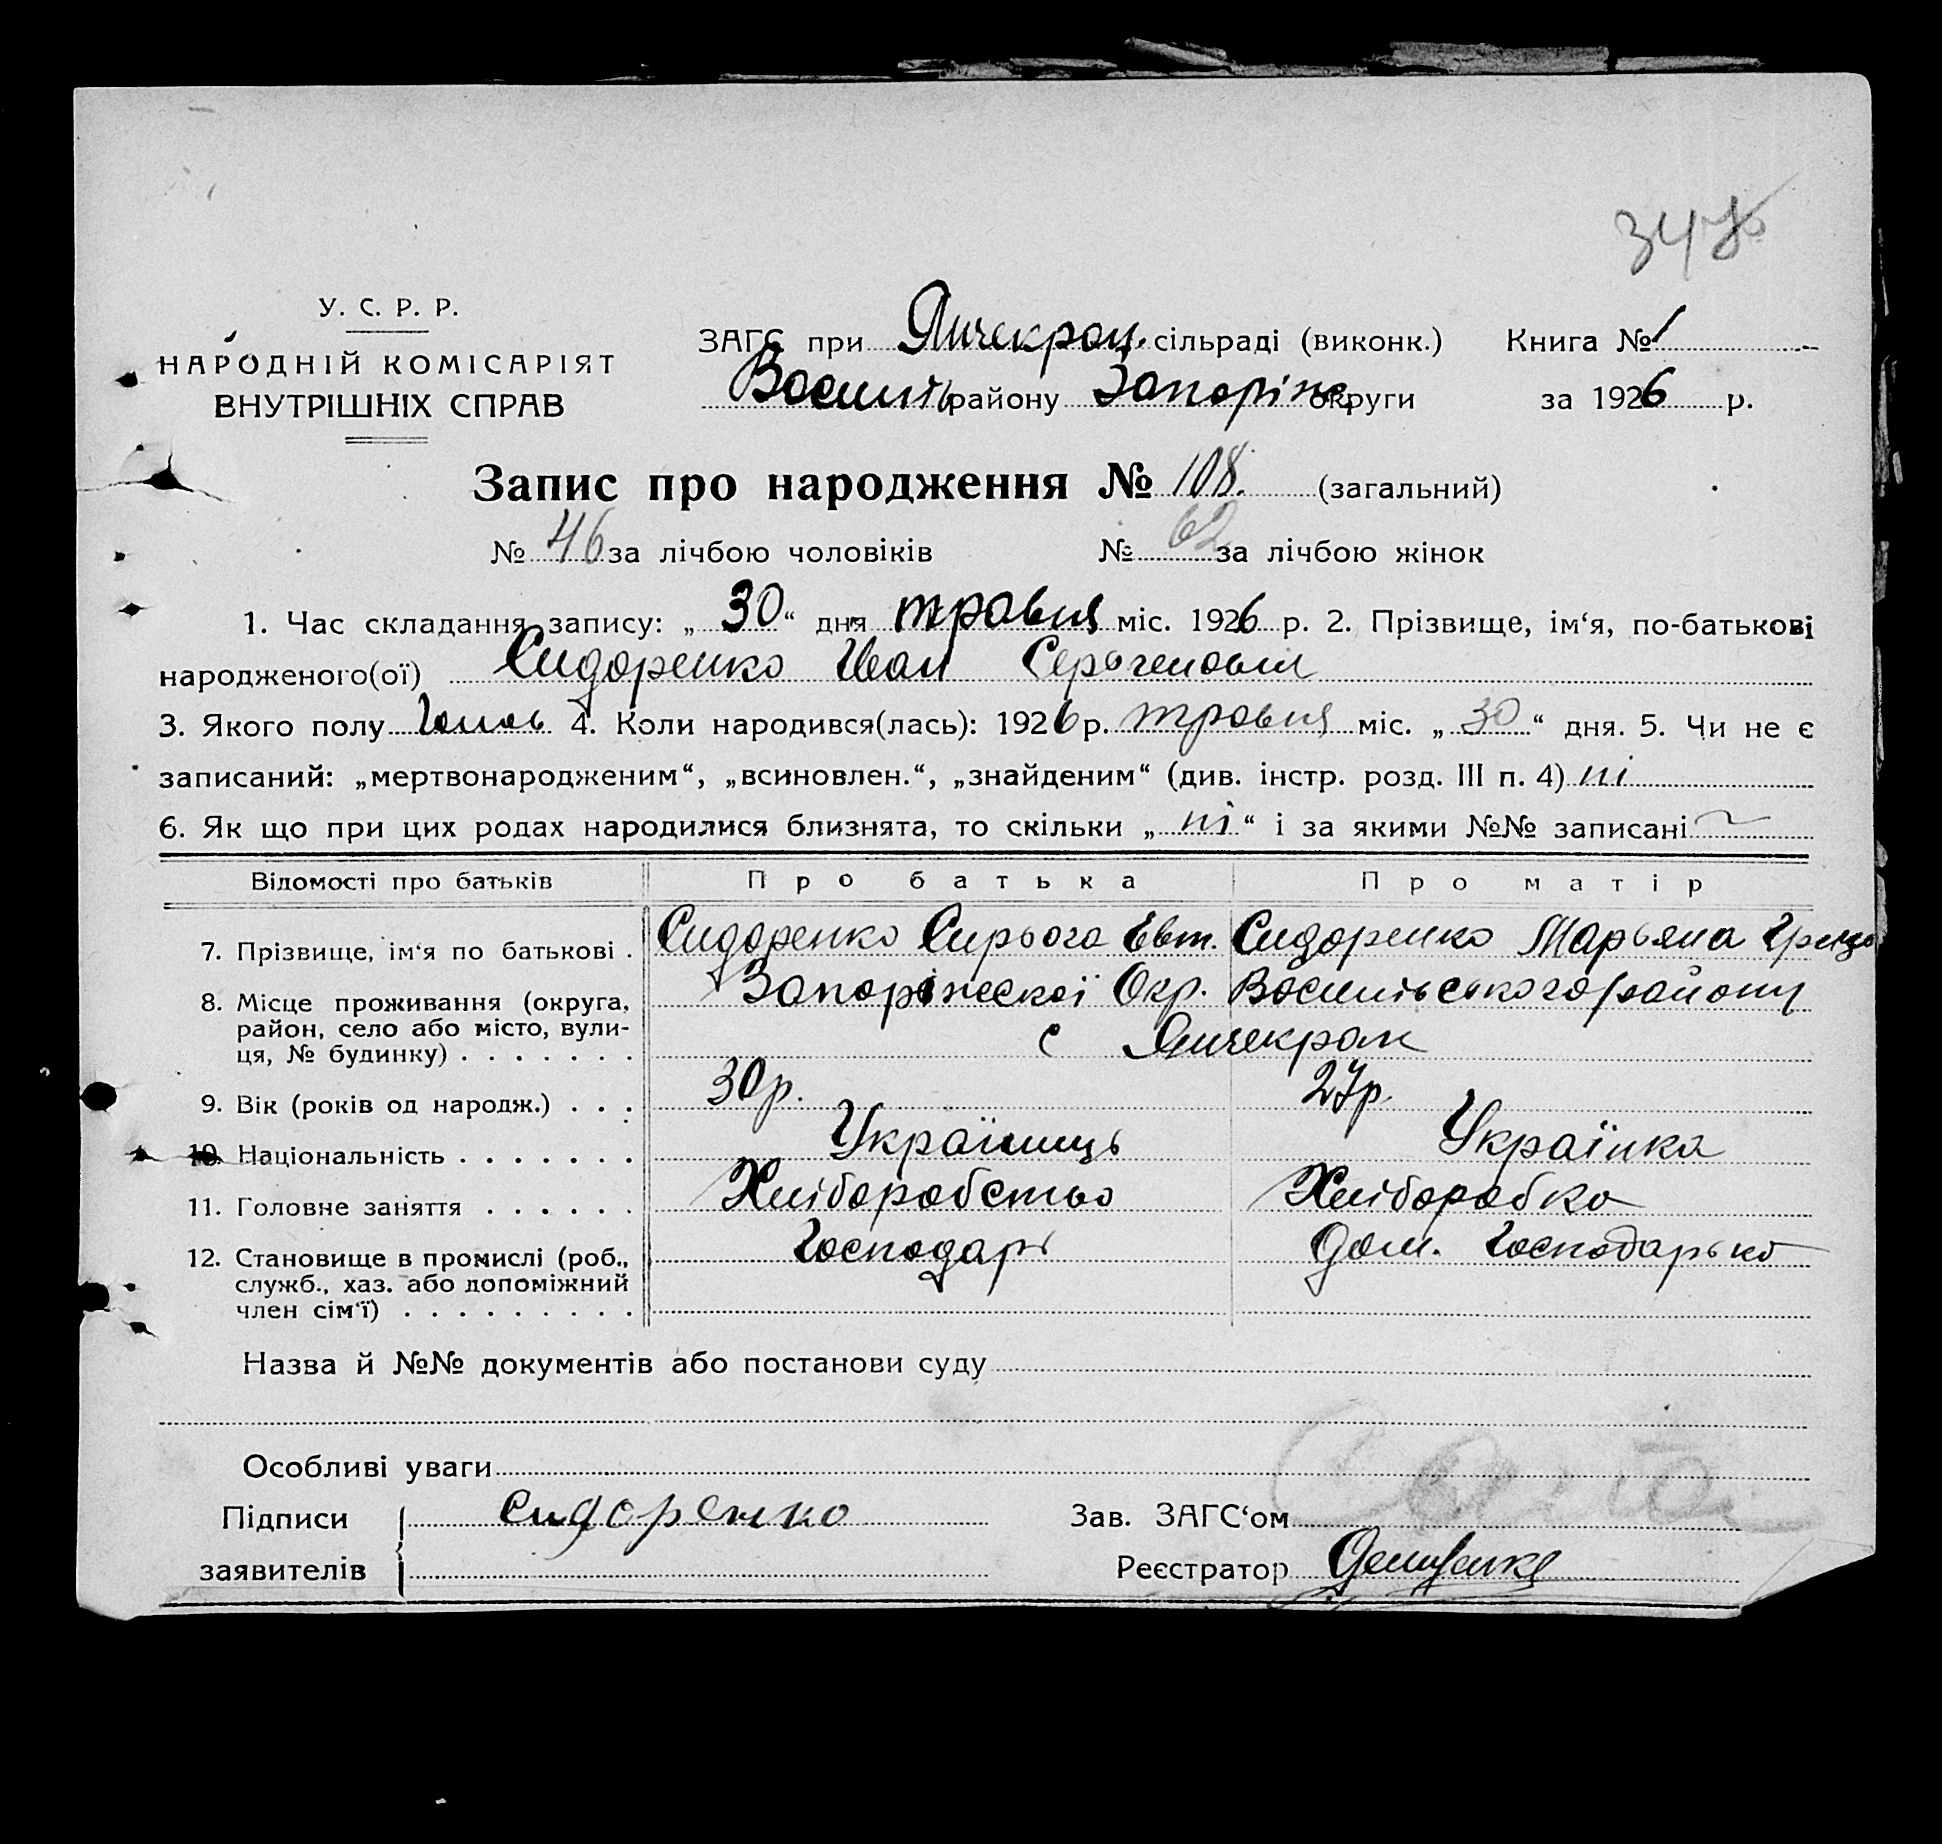 347
У. С. Р. Р.
НАРОДНІЙ КОМІСАРІЯТ
ВНУТРІШНІХ СПРАВ
ЗАГС при Янчекрац. сільраді (виконк.) Книга № 1
Василів району Запоріж. округи за 1926 р.
Запис про народження № 108. (загальний)
№ 46 за лічбою чоловіків № 62 за лічбою жінок
1. Час складання запису: „30“ дня травня міс. 1926 р. 2. Прізвище, ім‘я, по-батькові
народженого(ої) Сидоренко Іван
3. Якого полу 4. Коли народився(лась): 1926 р. травня міс. „30“ дня. 5. Чи не є
записаний: „мертвонародженим“, „всиновлен.“, „знайденим“ (див. інстр. розд. III п. 4) ні
6. Як що при цих родах народилися близнята, то скільки „ні“ і за якими №№ записані ~
Відомості про батьків Про батька Про матір
7. Прізвище, ім‘я по батькові . Сидоренко Сирьога Евт. Сидоренко Марьяна Грицо
8. Місце проживання (округа, район, село або місто, вулиця, № будинку) . . . . . . . Запоріжскої Окр. Васильвського району
с Янчекрак
9. Вік (років од народж.) . . . 30р. 27р.
10. Національність . . . . . . . Українець Українка
11. Головне заняття . . . . . . Хліборобство Хліборобка
12. Становище в промислі (роб., служб., хаз. або допоміжний член сім‘ї) . . . . . . . . . Господарь Дом. Господарька
Назва й №№ документів або постанови суду
Особливі уваги
Підписи заявителів Сидоренко
Зав. ЗАГС‘ом
Реєстратор